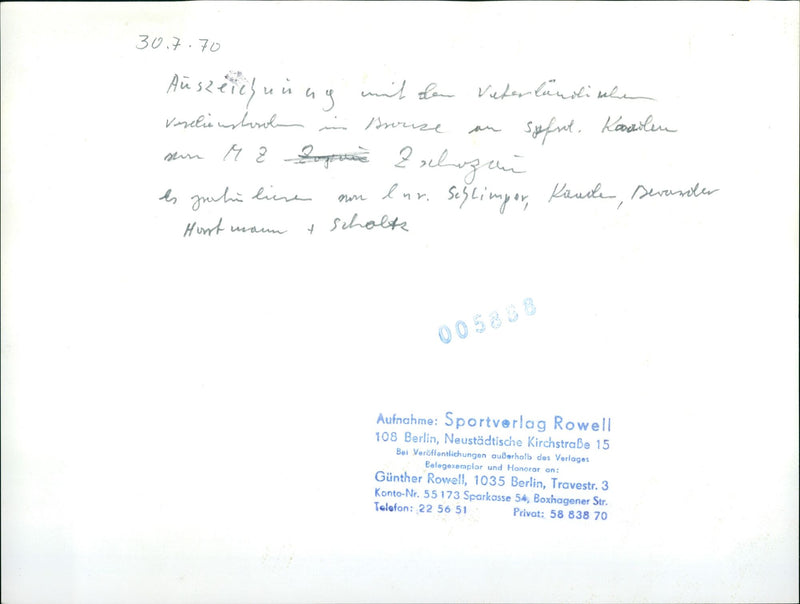 30.7.70
Auszeichnung mit dem Vaterländischen
Verdienstorden in Bronze an Spfrd. Kaaden
MZ Zschopau
es gratulieren Schlimper, Kaaden,
Horstmann + Scholtz
005888
Aufnahme: Sportverlag Rowell
108 Berlin, Neustädtische Kirchstraße 15
Bei Veröffentlichungen außerhalb des Verlages
Belegexemplar und Honorar an:
Günther Rowell, 1035 Berlin, Travestr. 3
Konto-Nr. 55 173 Sparkasse 54, Boxhagener Str.
Telefon: 22 56 51 Privat: 58 838 70